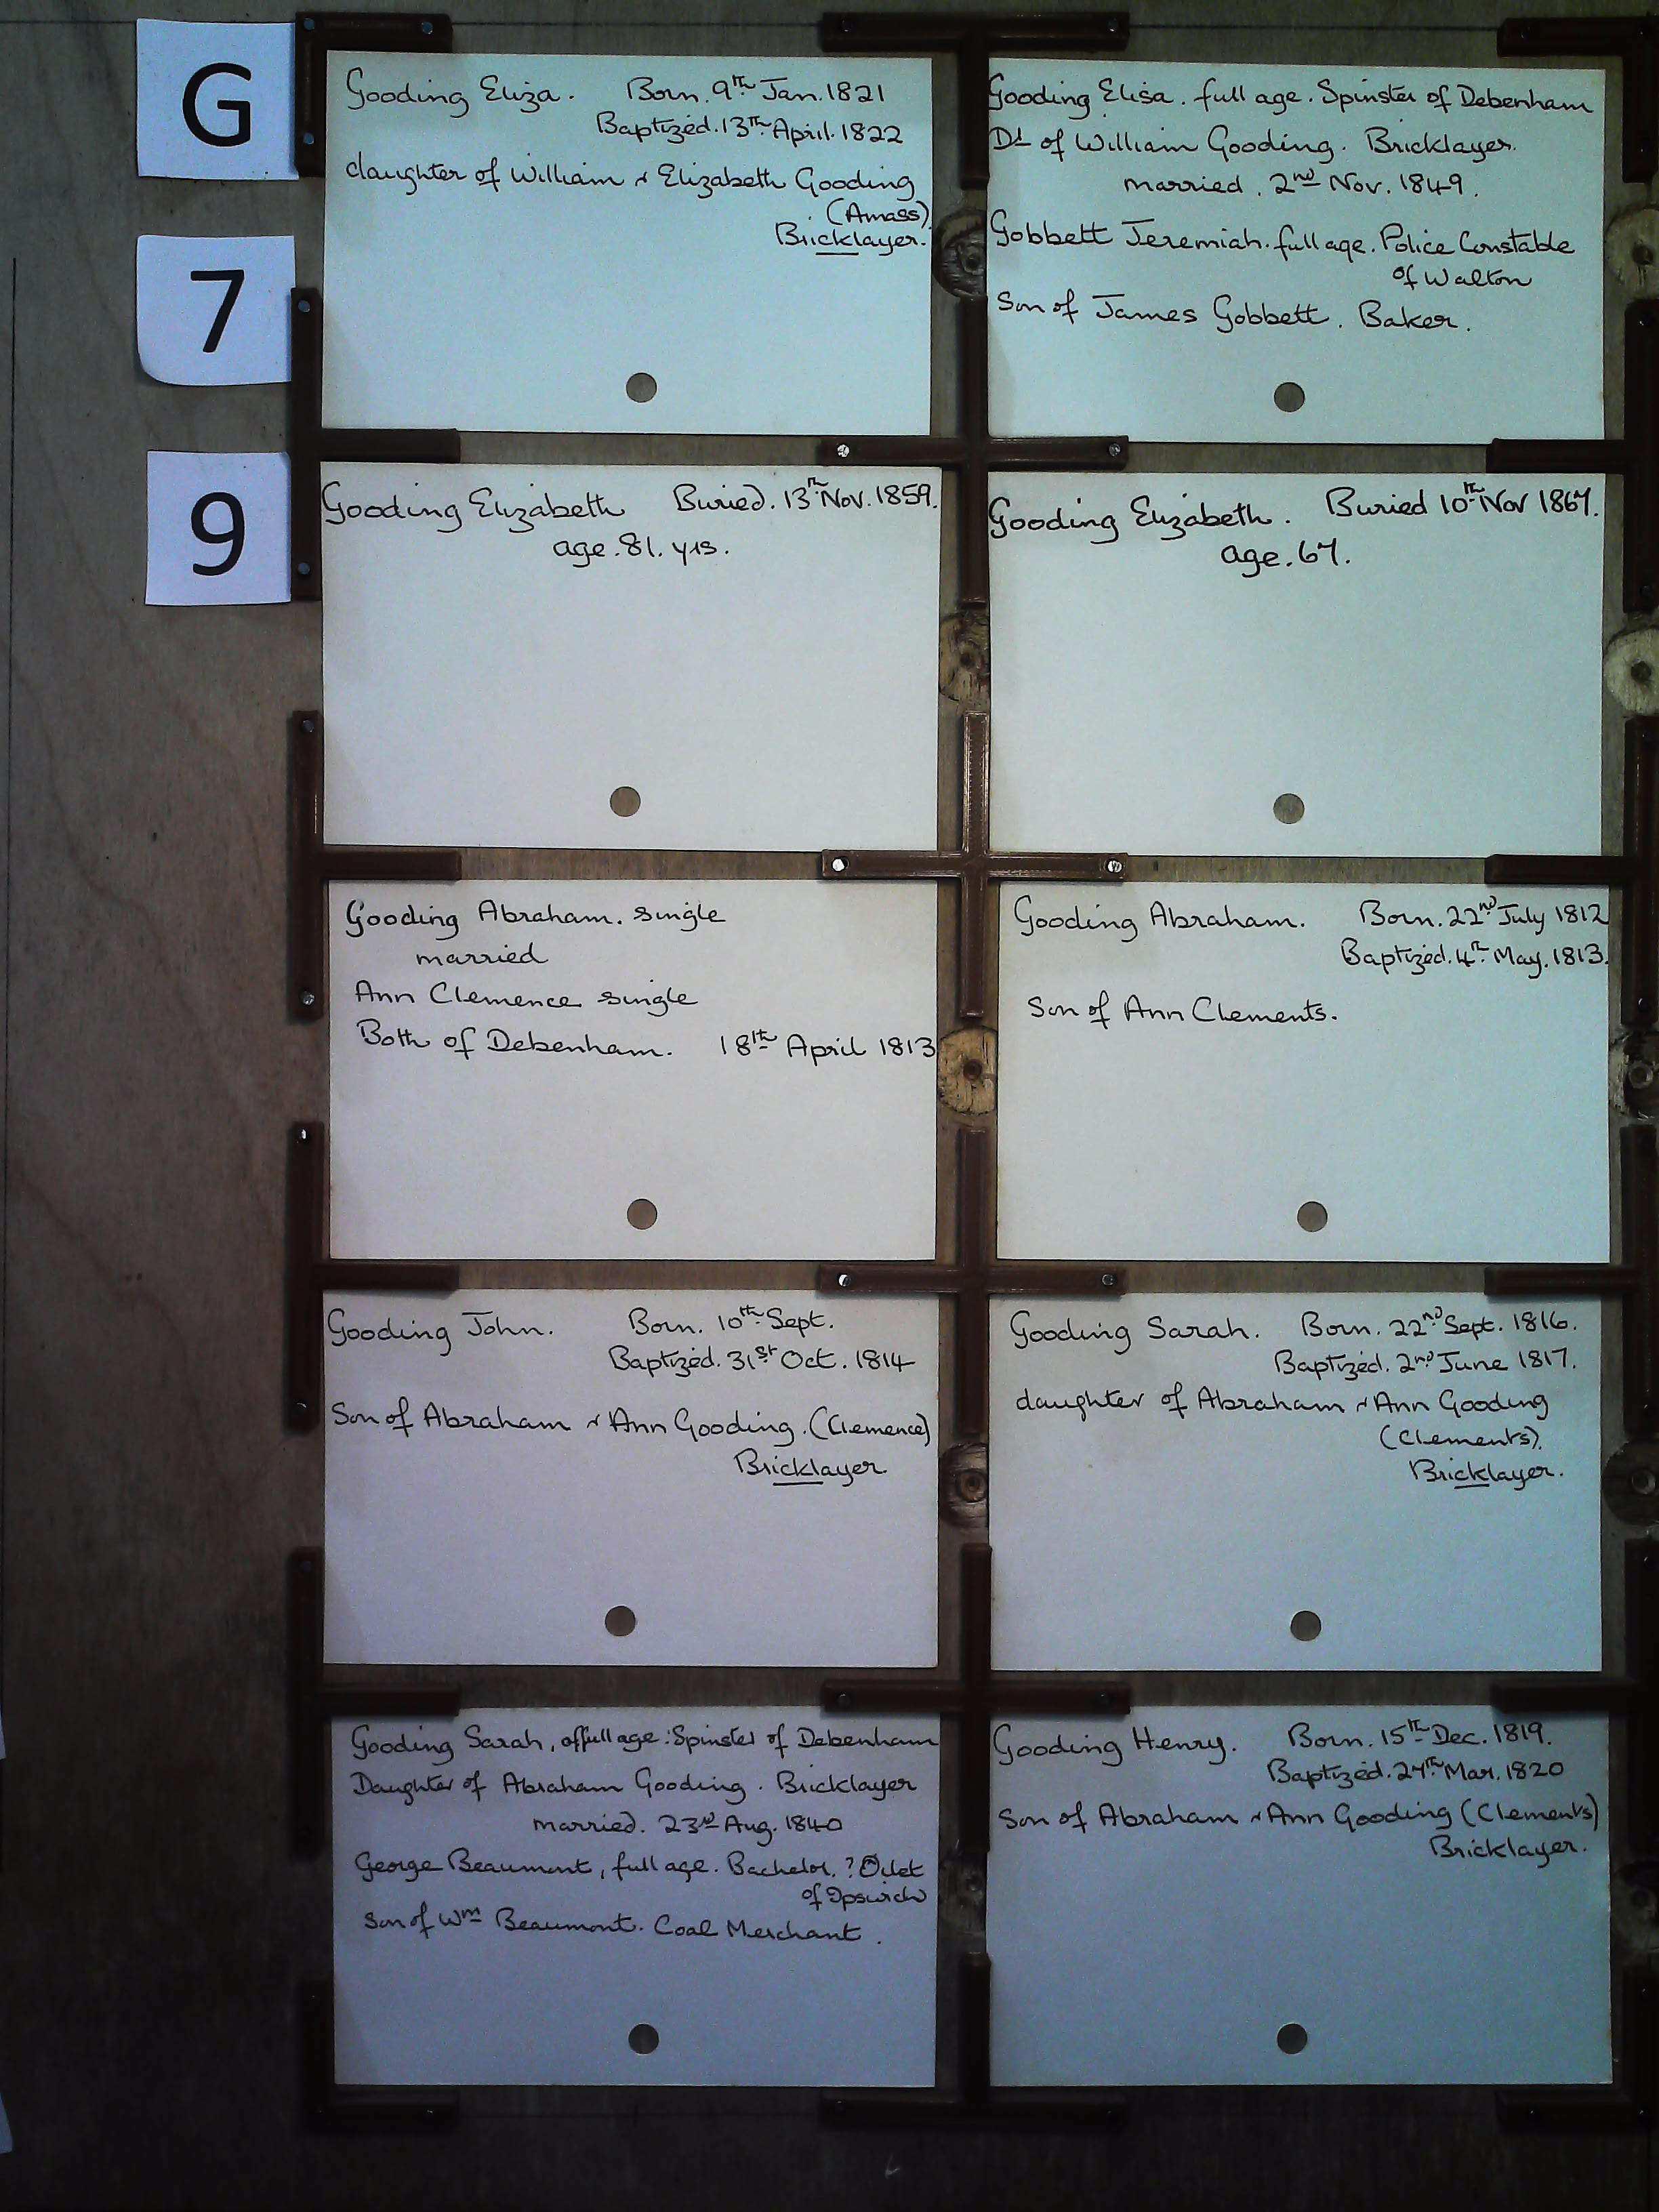 G
7
9
Gooding Eliza. Born. 9th Jan. 1821
Baptized. 13th April. 1822
daughter of William & Elizabeth Gooding
(Amass)
Bricklayer.
Gooding Elisa. full age. Spinster of Debenham
Dt of William Gooding. Bricklayer.
married. 2nd Nov. 1849.
Gobbett Jeremiah. full age. Police Constable
of Walton
Son of James Gobbett. Baker.
Gooding Elizabeth Buried. 13th Nov. 1859.
age. 81. yrs.
Gooding Elizabeth. Buried 10th Nov 1867.
age. 67.
Gooding Abraham. single
married
Ann Clemence single
Both of Debenham. 18th April 1813
Gooding Abraham. Born. 22nd July 1812
Baptized. 4th May. 1813.
Son of Ann Clements.
Gooding John. Born. 10th Sept.
Baptized. 31st Oct. 1814
Son of Abraham & Ann Gooding. (Clemence)
Bricklayer.
Gooding Sarah. Born. 22nd Sept. 1816.
Baptized. 2nd June 1817.
daughter of Abraham & Ann Gooding
(Clements).
Bricklayer.
Gooding Sarah, of full age: Spinster of Debenham
Daughter of Abraham Gooding. Bricklayer
married. 23rd Aug. 1840
George Beaumont, full age. Bachelor. ?
of Ipswich
Son of Wm Beaumont. Coal Merchant.
Gooding Henry. Born. 15th Dec. 1819.
Baptized. 27th Mar. 1820
Son of Abraham & Ann Gooding (Clements)
Bricklayer.